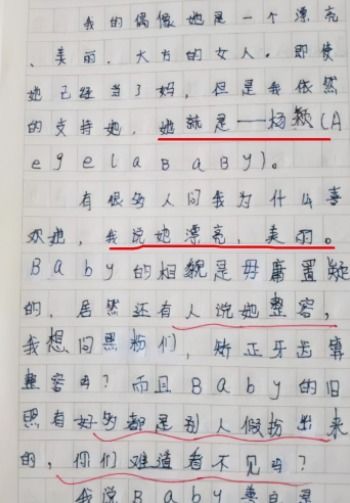 我的偶像她是一个漂亮
、美丽、大方的女人。即使
她已经当了妈，但是我依然
的支持她，她就是——杨颖(A
egelaBaBy)。
有很多人问我为什么喜
欢她，我说她漂亮，美丽。
Baby的相貌是毋庸置疑
的，居然还有人说她整容，
我想问黑粉们，矫正牙齿算
整容吗？而且Baby的旧
照有好多都是别人假扮出来
的，你们难道看不见吗？
我说Baby善良是